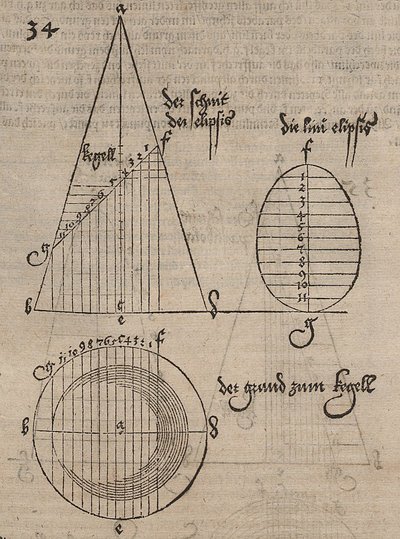 34
a
der schnit
der elipsis
f
kegell
1
2
3
4
5
6
7
8
9
10
11
g
b
c
e
d
die lini elipsis
f
1
2
3
4
5
6
7
8
9
10
11
g
g 11 10 9 8 7 6 5 c 4 3 2 1 f
b
a
d
e
der grund zum kegell